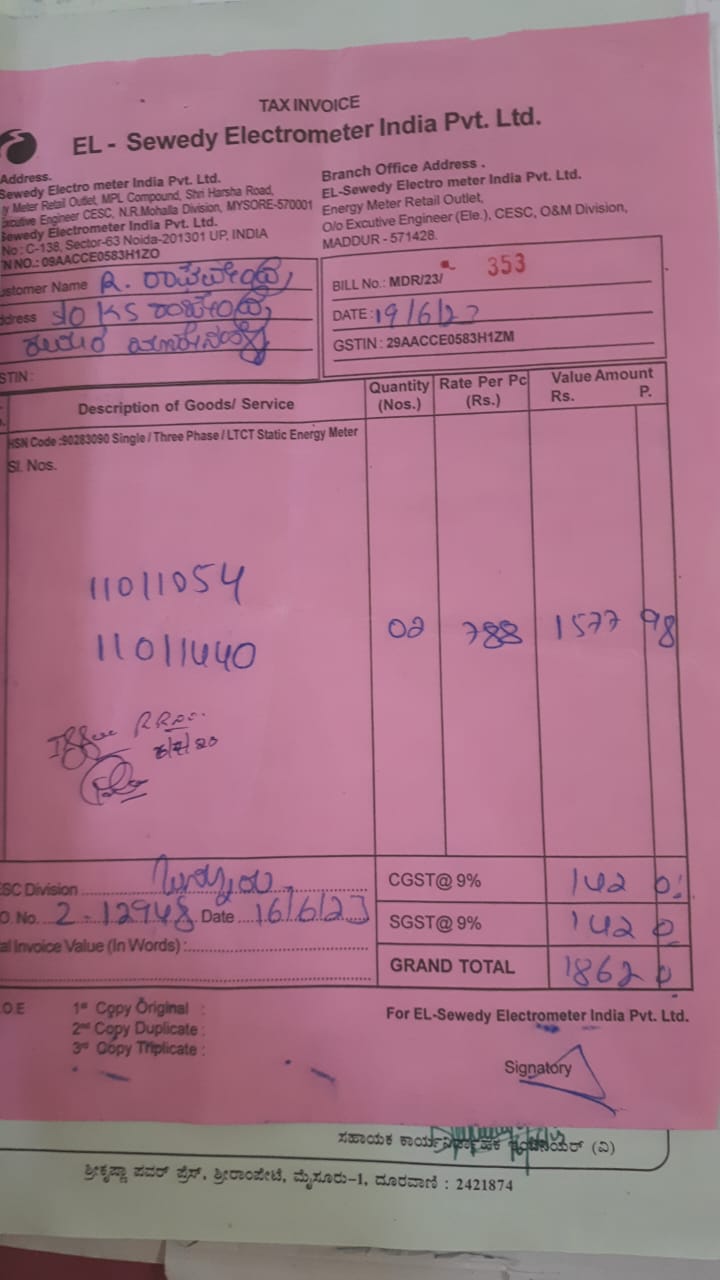 TAX INVOICE
EL - Sewedy Electrometer India Pvt. Ltd.
Address.
Sewedy Electro meter India Pvt. Ltd.
y Meter Retail Outlet, MPL Compound, Shri Harsha Road,
Excutive Engineer CESC, N.R.Mohalla Division, MYSORE-570001
Sewedy Electrometer India Pvt. Ltd.
No : C-138, Sector-63 Noida-201301 UP, INDIA
N NO.: 09AACCE0583H1ZO
Branch Office Address .
EL-Sewedy Electro meter India Pvt. Ltd.
Energy Meter Retail Outlet,
O/o Excutive Engineer (Ele.), CESC, O&M Division,
MADDUR - 571428.
ustomer Name R.
dress S/o KS
STIN :
BILL No.: MDR/23/ 353
DATE : 19/6/23
GSTIN : 29AACCE0583H1ZM
Description of Goods/ Service
Quantity (Nos.)
Rate Per Pc (Rs.)
Value Amount
Rs. P.
HSN Code :90283090 Single / Three Phase / LTCT Static Energy Meter
Sl. Nos.
11011054
11011440
02 788 1577 98
SC Division
O. No. 2-12948 Date 16/6/23
al Invoice Value (In Words) :
CGST@ 9% 142 0
SGST@ 9% 142 0
GRAND TOTAL 1862 0
O.E
1st Copy Original :
2nd Copy Duplicate :
3rd Copy Triplicate :
For EL-Sewedy Electrometer India Pvt. Ltd.
Signatory
ಸಹಾಯಕ ಕಾರ್ಯನಿರ್ವಾಹಕ ಇಂಜಿನಿಯರ್ (ವಿ)
ಶ್ರೀಕೃಷ್ಣಾ ಪವರ್ ಪ್ರೆಸ್, ಶ್ರೀರಾಂಪೇಟೆ, ಮೈಸೂರು-1, ದೂರವಾಣಿ : 2421874